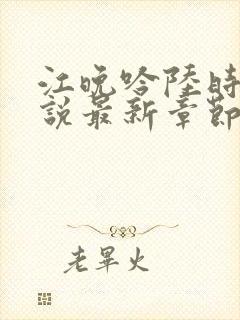 江晚吟陸時
說最新章節
老畢火